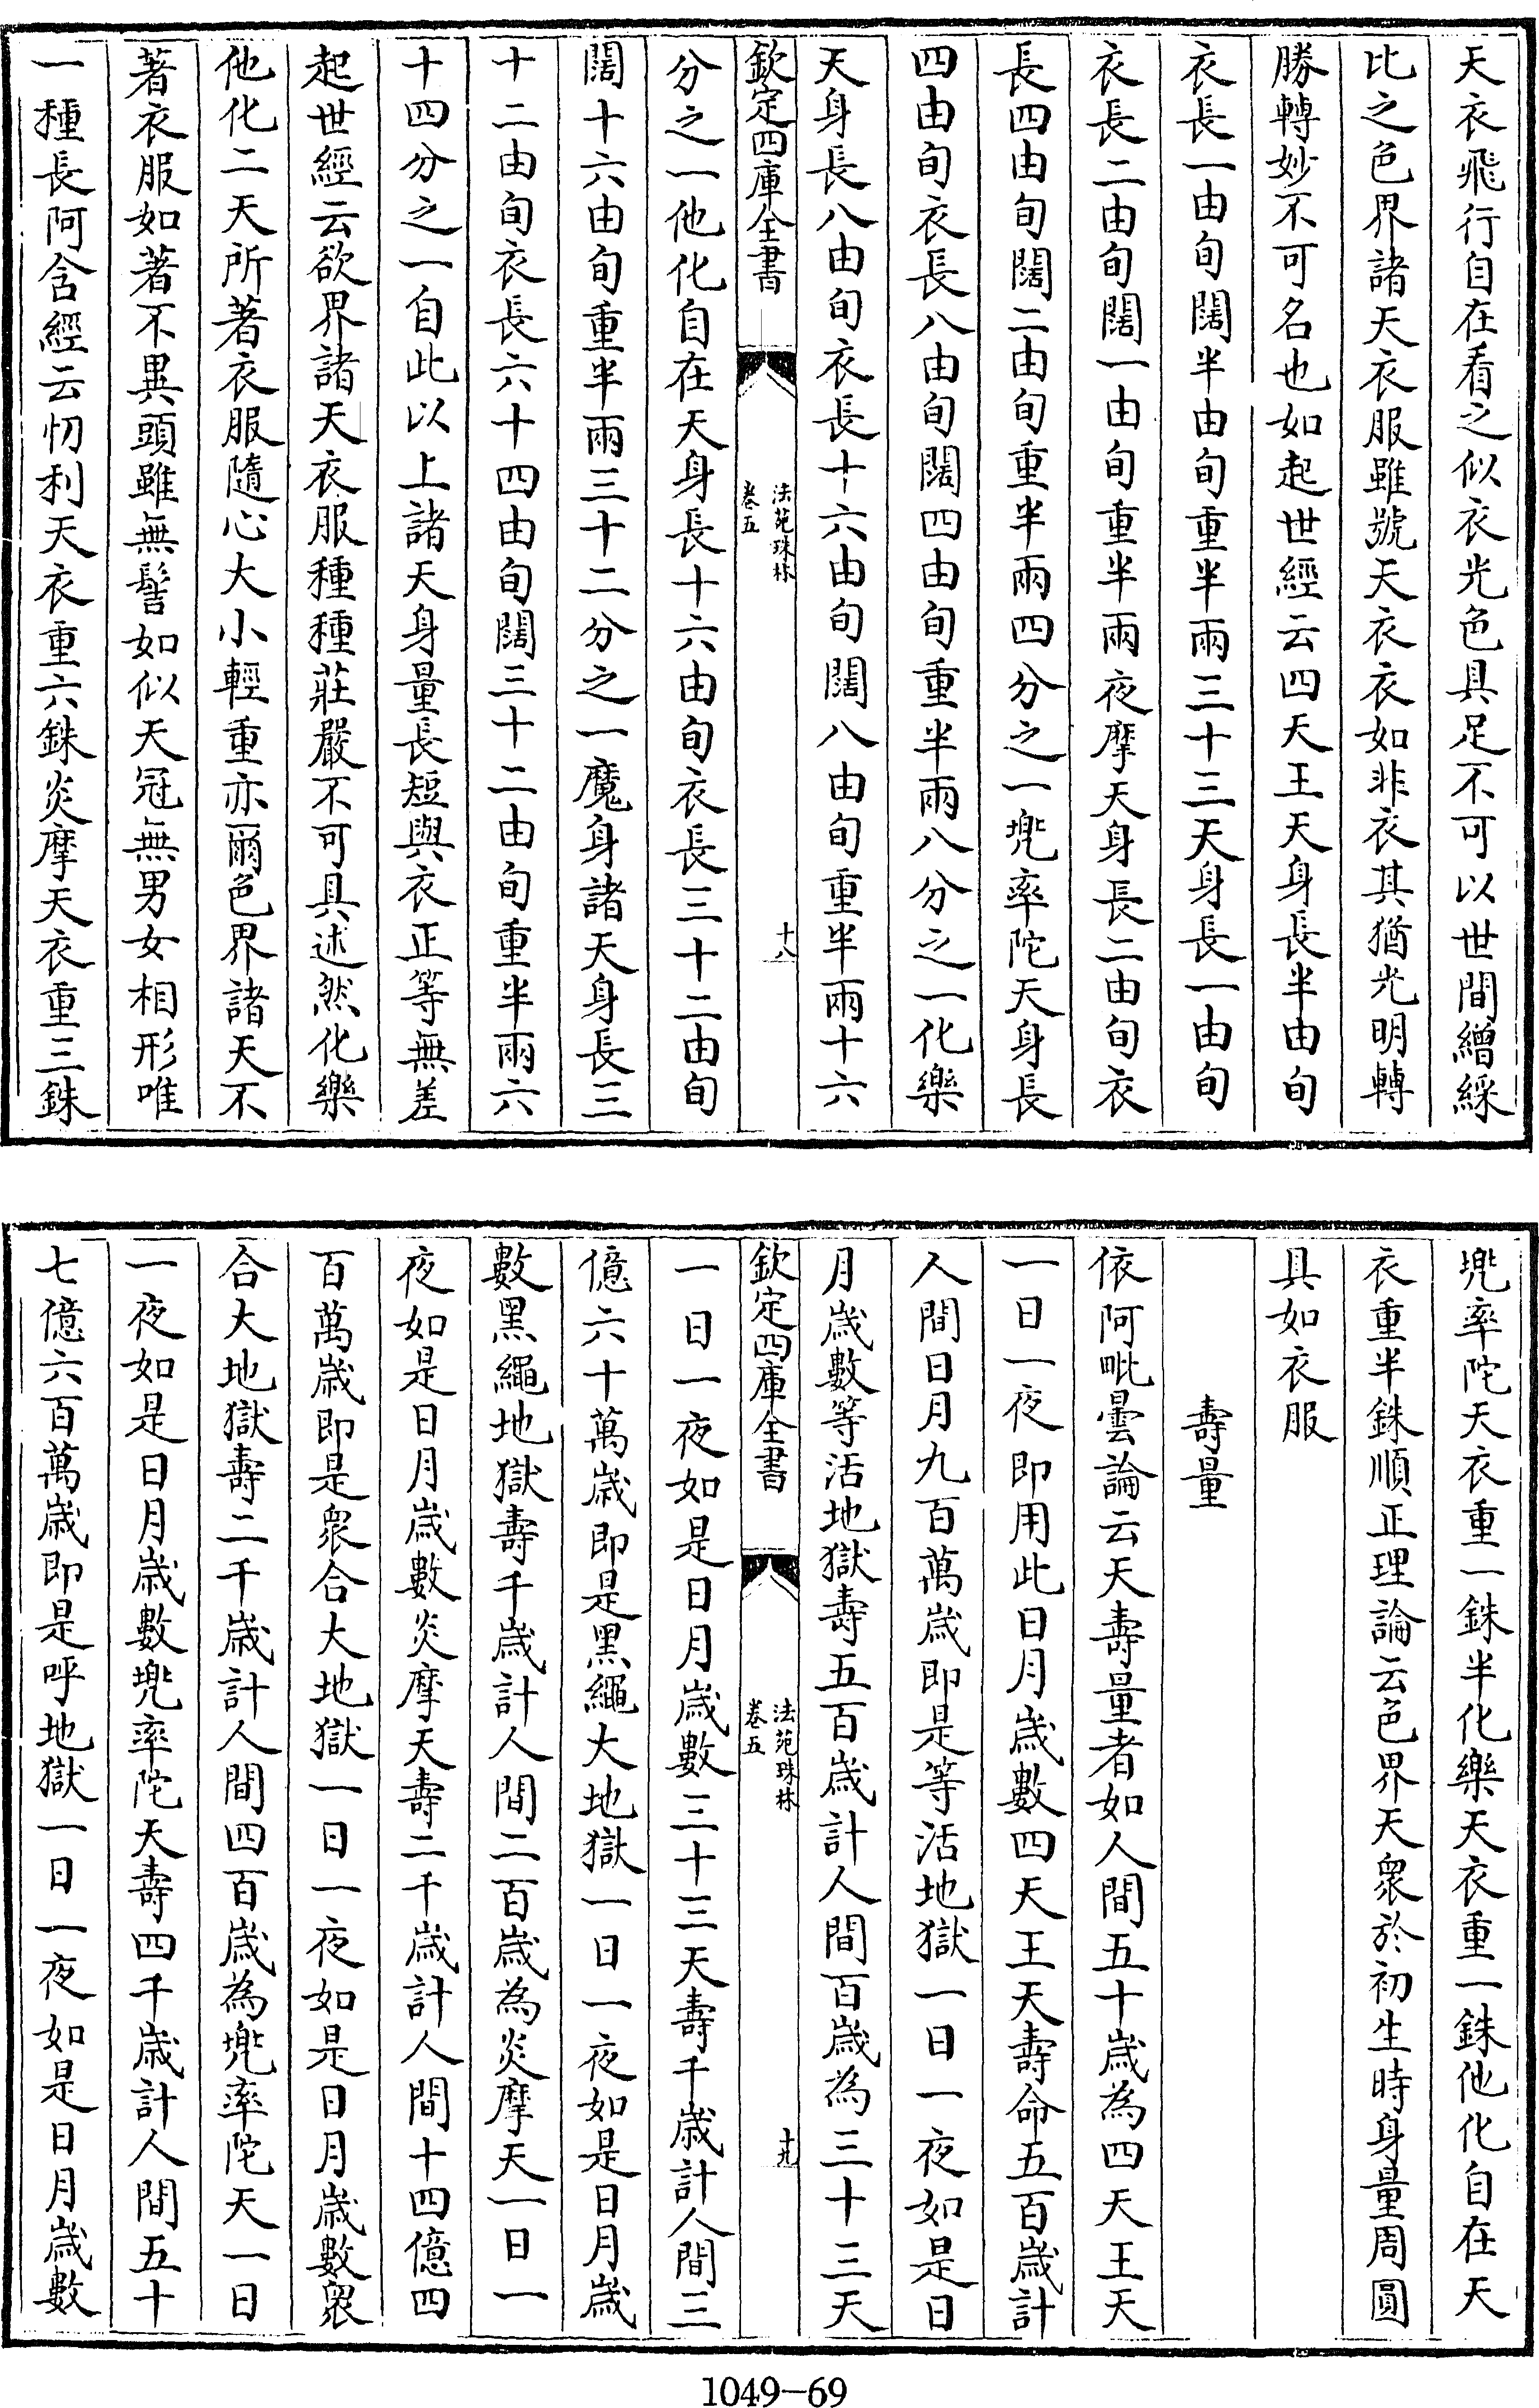 天衣飛行自在看之似衣光色具足不可以世間繒綵
比之色界諸天衣服雖號天衣衣如非衣其猶光明轉
勝轉妙不可名也如起世經云四天王天身長半由旬
衣長一由旬闊半由旬重半兩三十三天身長一由旬
衣長二由旬闊一由旬重半兩夜摩天身長二由旬衣
長四由旬闊二由旬重半兩四分之一兜率陀天身長
四由旬衣長八由旬闊四由旬重半兩八分之一化樂
天身長八由旬衣長十六由旬闊八由旬重半兩十六
欽定四庫全書
法苑珠林
卷五
十八
分之一他化自在天身長十六由旬衣長三十二由旬
闊十六由旬重半兩三十二分之一魔身諸天身長三
十二由旬衣長六十四由旬闊三十二由旬重半兩六
十四分之一自此以上諸天身量長短與衣正等無差
起世經云欲界諸天衣服種種莊嚴不可具述然化樂
他化二天所著衣服隨心大小輕重亦爾色界諸天不
著衣服如著不異頭雖無髻如似天冠無男女相形唯
一種長阿含經云忉利天衣重六銖炎摩天衣重三銖
兜率陀天衣重一銖半化樂天衣重一銖他化自在天
衣重半銖順正理論云色界天衆於初生時身量周圓
具如衣服
壽量
依阿毗曇論云天壽量者如人間五十歲為四天王天
一日一夜即用此日月歲數四天王天壽命五百歲計
人間日月九百萬歲即是等活地獄一日一夜如是日
月歲數等活地獄壽五百歲計人間百歲為三十三天
欽定四庫全書
法苑珠林
卷五
十九
一日一夜如是日月歲數三十三天壽千歲計人間三
億六十萬歲即是黑繩大地獄一日一夜如是日月歲
數黑繩地獄壽千歲計人間二百歲為炎摩天一日一
夜如是日月歲數炎摩天壽二千歲計人間十四億四
百萬歲即是衆合大地獄一日一夜如是日月歲數衆
合大地獄壽二千歲計人間四百歲為兜率陀天一日
一夜如是日月歲數兜率陀天壽四千歲計人間五十
七億六百萬歲即是呼地獄一日一夜如是日月歲數
1049-69